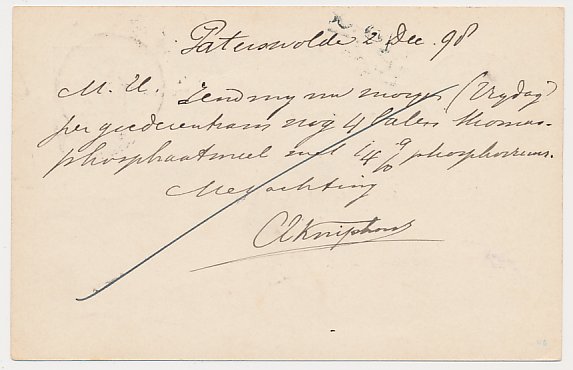 Paterswolde 2 Dec. 98
M. H. Zend my nu morgen (Vrydag)
per goederentram nog 4 balen Thomas-
phosphaatmeel met 14 % phosphorzuur.
Met achting